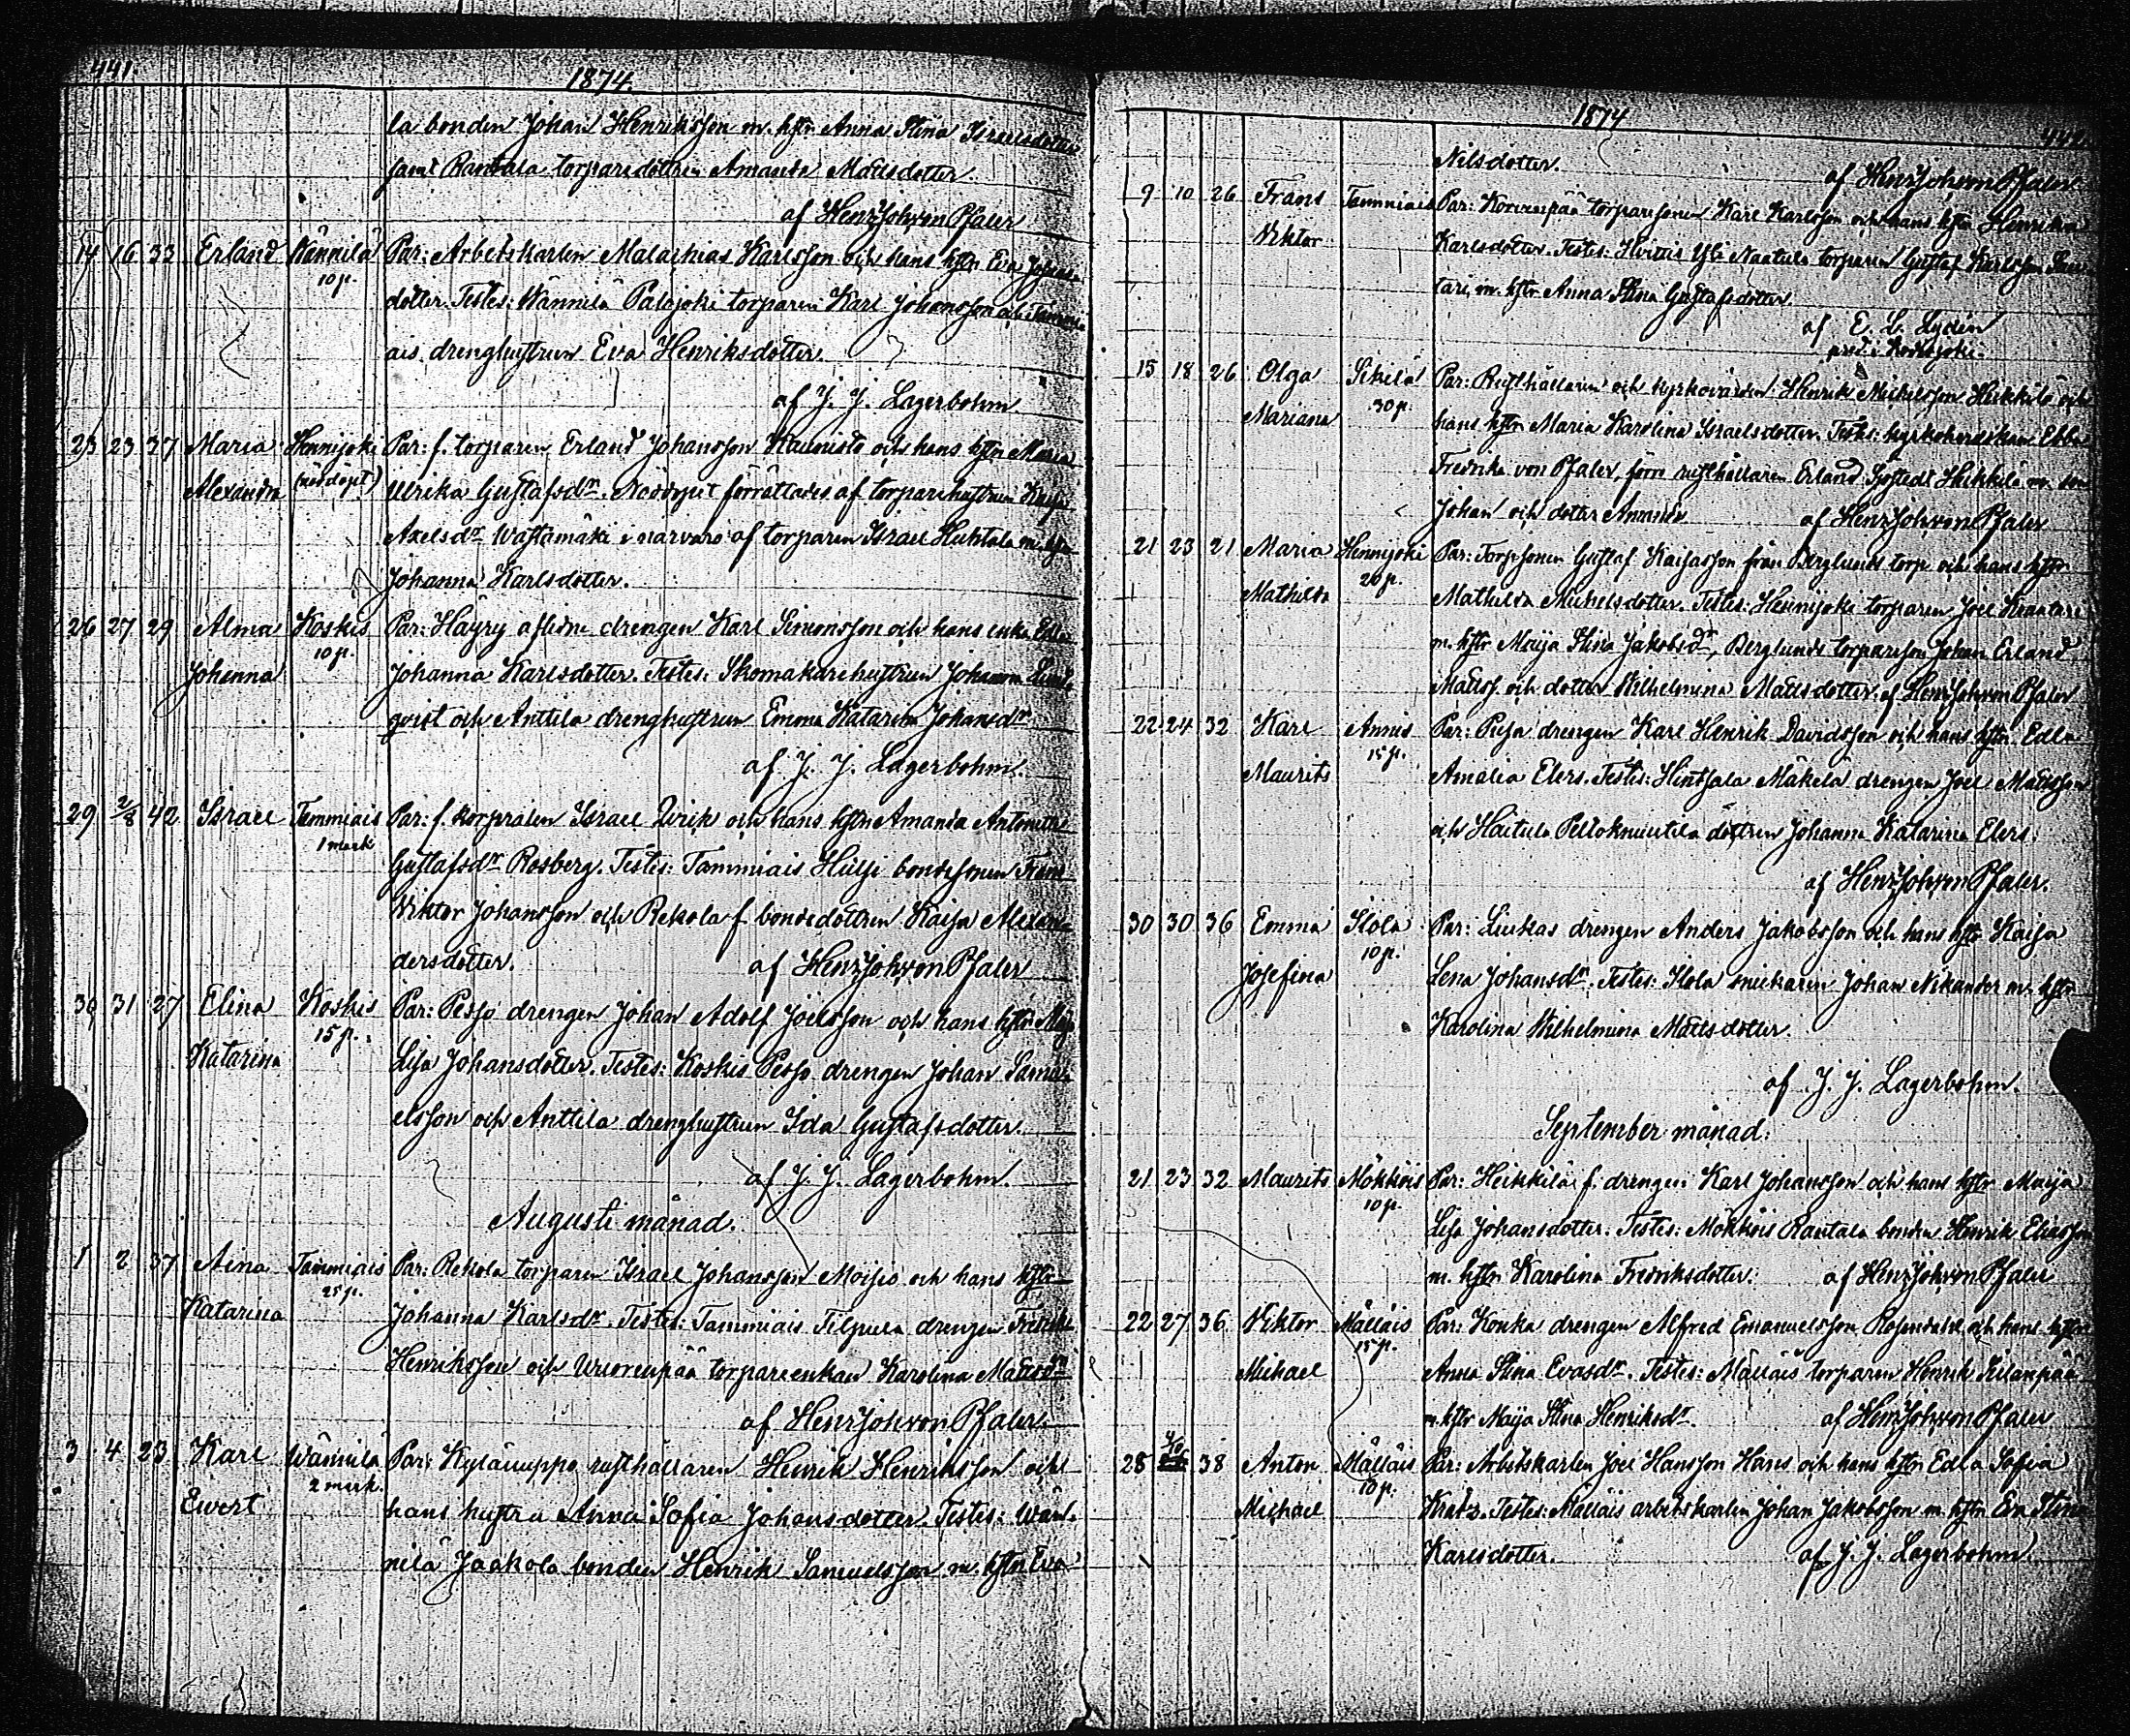 441
1874.
la bonden Johan Henriksson m. hstr Anna Stina Israelsdotter
samt Rantala torparedottren Amanda Mattsdotter.
af Henr Joh von Pfaler
14 16 33 Erland Wännilä Par: Arbetskarlen Malachias Karlsson och hans hstr Eva Johans-
10 p. dotter. Testes: Wännilä Palojoki torparen Karl Johansson och Tammi-
ais drenghustrun Eva Henriksdotter
af J. J. Lagerbohm
23 23 37 Maria Hennijoki Par: f. torparen Erland Johansson Haunisto och hans hstr Maria
Alexandra (nöddöpt) Ulrika Gustafsdr. Nöddopet förrättades af torparehustrun Kaisa
Axelsdr Wastamäki i närvaro af torparen Israel Huhtala m. hstr
Johanna Karlsdotter.
26 27 29 Alma Koskis Par: Häyry aflidne drengen Karl Simonsson och hans enka Edla
Johanna 10 p. Johanna Karlsdotter. Testes: Skomakarehustrun Johanna Lind-
qvist och Anttila drenghustrun Emma Katarina Johansdr
af J. J. Lagerbohm.
29 2/8 42 Israel Tammiais Par: f. korpralen Israel Qvick och hans hstr Amanda Antonetta
1 mark Gustafsdr Rosberg. Testes: Tammiais Hulsi bondesonen Frans
Viktor Johansson och Rekola f. bondedottren Kaisa Alexan-
dersdotter. af Henr Joh von Pfaler
30 31 27 Elina Koskis Par: Pesso drengen Johan Adolf Joelsson och hans hstr Maja
Katarina 15 p. Lisa Johansdotter. Testes: Koskis Pesso drengen Johan Samu-
elsson och Anttila drenghustrun Ida Gustafsdotter.
af J. J. Lagerbohm.
Augusti månad.
1 2 37 Aina Tammiais Par: Rekola torparen Israel Johansson Moisio och hans hstr
Katarina 25 p. Johanna Karlsdr. Testes: Tammiais Tilpula drengen Fredrik
Henriksson och Wuorenpää torpareenkan Karolina Mattsdr
af Henr Joh von Pfaler
3 4 23 Karl Wännilä Par: Kylänuppo rusthållaren Henrik Henriksson och
Ewert 2 mark. hans hustru Anna Sofia Johansdotter. Testes: Wän-
nilä Jaakola bonden Henrik Samuelsson m. hstr Eva
1874
442
Nilsdotter. af Henr Joh von Pfaler
9 10 26 Frans Tammiais Par: Korvenpää torparesonen Karl Karlsson och hans hstr Henrika
Viktor Karlsdotter. Testes: Hvittis Yli Naatula torparen Gustaf Karlsson
tari m. hstr Anna Stina Gustafsdotter
af E. L. Lydén
pred. i Kodisjoki.
15 18 26 Olga Sikilä Par: Rusthållaren och kyrkovärden Henrik Michelsson Heikkilä och
Mariana 30 p. hans hstr Maria Karolina Israelsdotter. Testes: kyrkoherdskan Ebba
Fredrika von Pfaler, förre rusthållaren Erland Sjöstedt Heikkilä m. son
Johan och dotter Amanda af Henr Joh von Pfaler
21 23 21 Maria Hennijoki Par: Torpsonen Gustaf Kaisasson från Berglunds torp och hans hstr
Mathilda 20 p. Mathilda Michelsdotter. Testes: Hennijoki torparen Joel Kraatari
m. hstr Maija Stina Jakobsdr, Berglunds torpareson Johan Erland
Mattss. och dotter Wilhelmina Mattsdotter. af Henr Joh von Pfaler
22 24 32 Karl Annis Par: Piesa drengen Karl Henrik Davidsson och hans hstr Edla
Maurits 15 p. Amalia Elers. Testes: Hintsala Mäkelä drengen Joel Mattsson
och Haitula Peltoknuutila dottren Johanna Katarina Elers.
af Henr Joh von Pfaler.
30 30 36 Emma Ilola Par: Liukas drengen Anders Jakobsson och hans hstr Kaisa
Josefina 10 p. Lena Johansdr. Testes: Ilola snickaren Johan Nikander m. hstr
Karolina Wilhelmina Mattsdotter.
af J. J. Lagerbohm.
September månad.
21 23 32 Maurits Mökköis Par: Heikkilä f. drengen Karl Johansson och hans hstr Maija
10 p. Lisa Johansdotter. Testes: Mökköis Rantala bonden Henrik Eliasson
m. hstr Karolina Fredriksdotter. af Henr Joh von Pfaler
22 27 36 Viktor Mälläis Par: Konka drengen Alfred Emanuelsson Rosendahl och hans hstr
Michael 15 p. Anna Stina Evasdr. Testes: Mälläis torparen Henrik Sillanpää
m. hstr Maija Stina Henriksdr. af Henr Joh von Pfaler
28 4/10 38 Anton Mälläis Par: Arbetskarlen Joel Hansson Haris och hans hstr Edla Sofia
Michael 10 p. Kratz. Testes: Mälläis arbetskarlen Johan Jakobsson m. hstr Eva Stina
Karlsdotter. af J. J. Lagerbohm